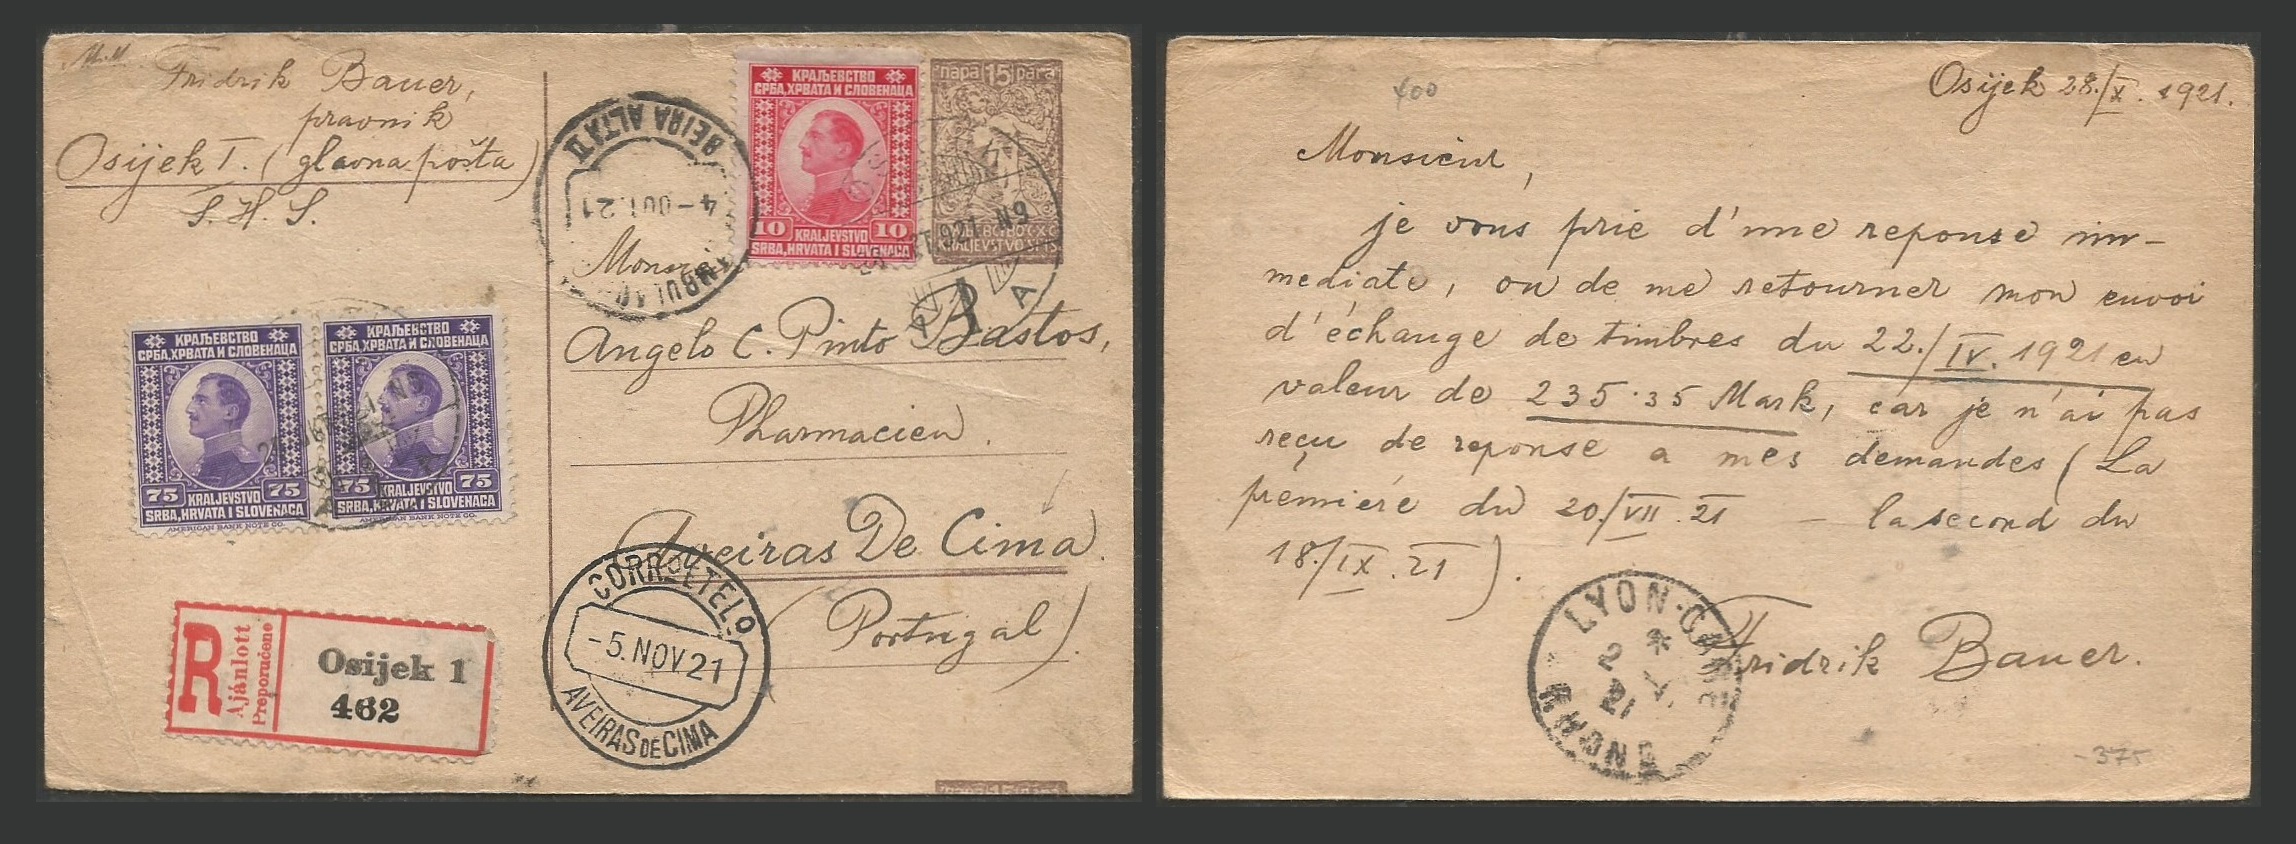 M.M.
Fridrik Bauer,
pravnik
Osijek I. (glavna pošta)
S. H. S.
КРАЉЕВСТВО
СРБА, ХРВАТА И СЛОВЕНАЦА
10 KRALJEVSTVO 10
SRBA, HRVATA I SLOVENACA
пара 15 para
KRALJEVSTVO SHS
BEIRA ALTA II
4-OUT.21
AMBULAN
921 N9
A
Monsieur
Angelo C. Pinto Bastos,
Pharmacien.
Aveiras De Cima.
(Portugal)
КРАЉЕВСТВО
СРБА, ХРВАТА И СЛОВЕНАЦА
75 KRALJEVSTVO 75
SRBA, HRVATA I SLOVENACA
AMERICAN BANK NOTE CO.
КРАЉЕВСТВО
СРБА, ХРВАТА И СЛОВЕНАЦА
75 KRALJEVSTVO 75
SRBA, HRVATA I SLOVENACA
AMERICAN BANK NOTE CO.
R
Ajánlott
Preporučeno
Osijek 1
462
CORRº E TELº
-5.NOV.21
AVEIRAS DE CIMA
400
Osijek 28./X. 1921.
Monsieur,
je vous prie d'une reponse im-
mediate, ou de me retourner mon envoi
d'échange de timbres du 22./IV. 1921 en
valeur de 235·35 Mark, car je n'ai pas
reçu de reponse a mes demandes (La
premiére du 20./VII. 21 – la second du
18./IX. 21).
Fridrik Bauer.
LYON-GARE
RHONE
-375